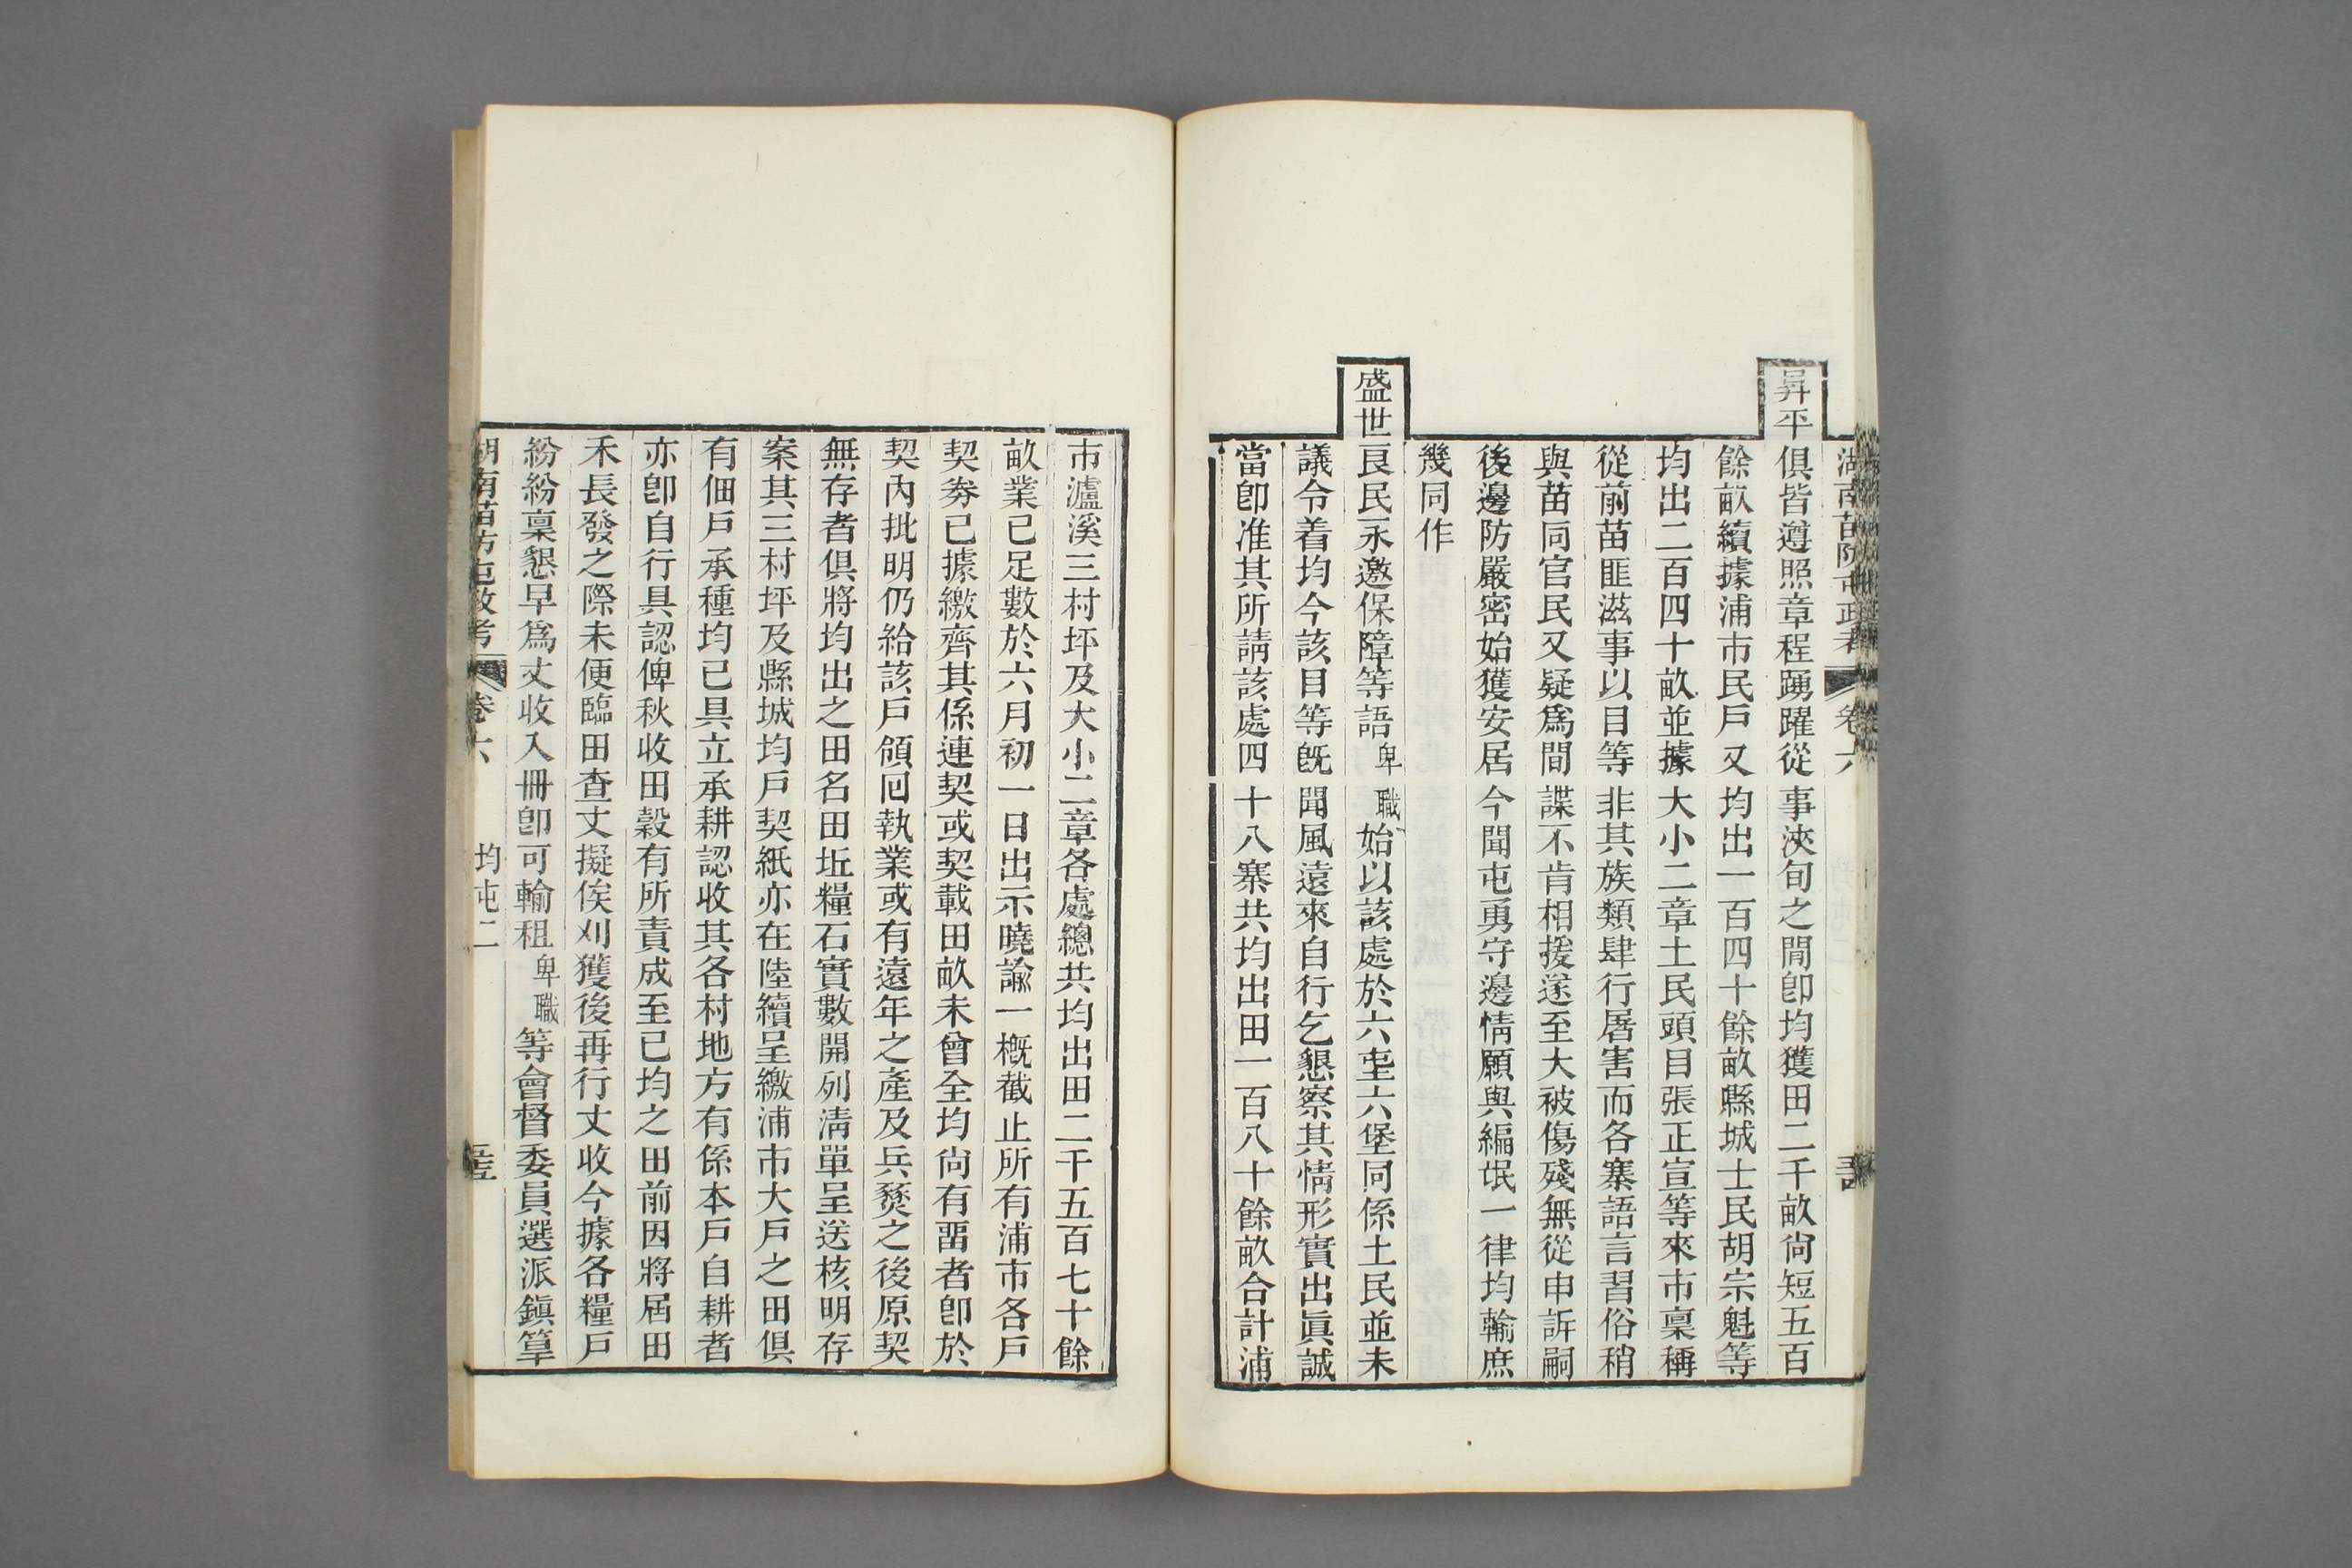 湖南苗防屯政考 卷六
昇平俱皆遵照章程踴躍從事浹旬之閒卽均獲田二千畝尙短五百
餘畝續據浦市民戶又均出一百四十餘畝縣城士民胡宗魁等
均出二百四十畝並據大小二章土民頭目張正宣等來市稟稱
從前苗匪滋事以目等非其族類肆行屠害而各寨語言習俗稍
與苗同官民又疑爲間諜不肯相援遂至大被傷殘無從申訴嗣
後邊防嚴密始獲安居今聞屯勇守邊情願與編氓一律均輸庶
幾同作
盛世良民永邀保障等語卑職始以該處於六屯六堡同係土民並未
議令着均今該目等旣聞風遠來自行乞懇察其情形實出眞誠
當卽准其所請該處四十八寨共均出田一百八十餘畝合計浦
市瀘溪三村坪及大小二章各處總共均出田二千五百七十餘
畝業已足數於六月初一日出示曉諭一槪截止所有浦市各戶
契劵已據繳齊其係連契或契載田畝未曾全均尙有畱者卽於
契內批明仍給該戶領回執業或有遠年之產及兵燹之後原契
無存者俱將均出之田名田坵糧石實數開列淸單呈送核明存
案其三村坪及縣城均戶契紙亦在陸續呈繳浦市大戶之田俱
有佃戶承種均已具立承耕認收其各村地方有係本戶自耕者
亦卽自行具認俾秋收田穀有所責成至已均之田前因將屆田
禾長發之際未便臨田查丈擬俟刈獲後再行丈收今據各糧戶
紛紛稟懇早爲丈收入冊卽可輸租卑職等會督委員選派鎭筸
湖南苗防屯政考 卷六 均屯二